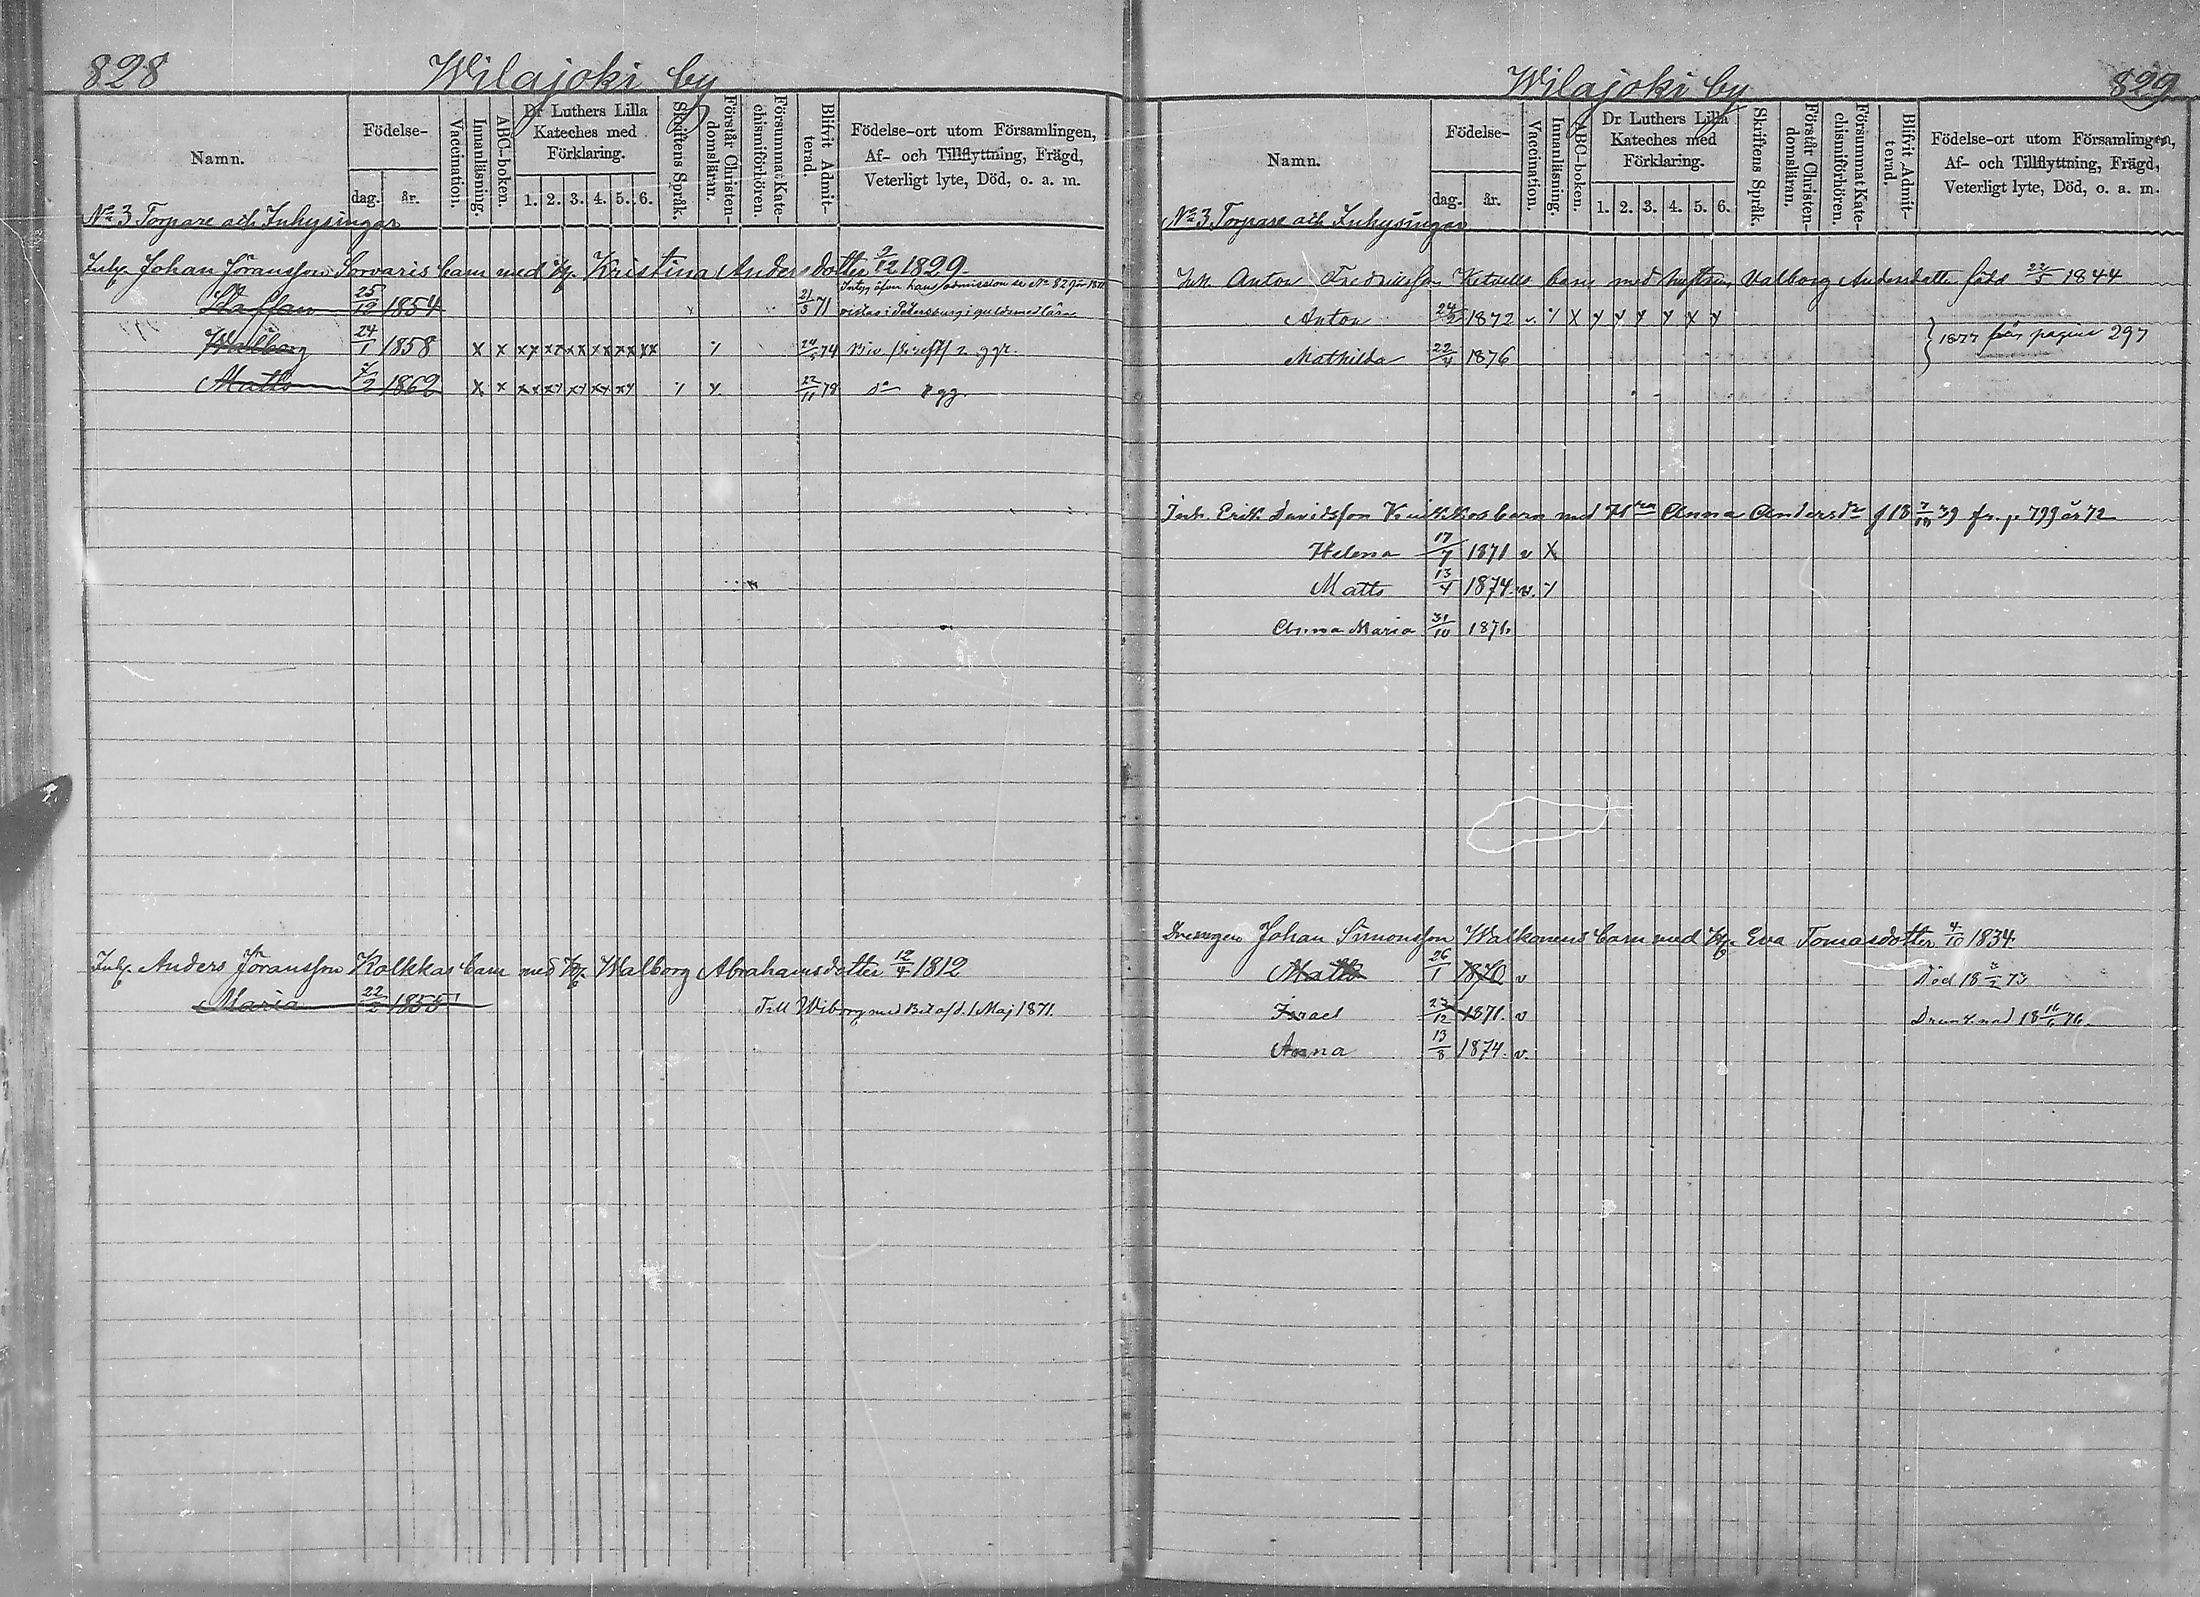 828 Wilajoki by
Namn. Födelse- dag. år. Vaccination. Innanläsning. ABC-boken. Dr Luthers Lilla Kateches med Förklaring. 1. 2. 3. 4. 5. 6. Skriftens Språk. Förstår Christendomsläran. Försummat Katechismiförhören. Blifvit Admitterad. Födelse-ort utom Församlingen, Af- och Tillflyttning, Frägd, Veterligt lyte, Död, o. a. m.
No 3 Torpare och Inhysingar
Inhs. Johan Jöransson Sorvaris barn med H. Kristina Andersdotter 9/12 1829.
Staffan 25/12 1854 21/5 71
Walborg 24/1 1858 x x xx xx xx xx xx xx 74 2 ggr.
Matts 7/2 1862 x x 22/11 78 do gg.
Inhs. Anders Jöransson Kolkkas barn med H. Walborg Abrahamsdotter 12/4 1812
Maria 22/2 1855 Till Wiborg med Bet. af d. 1 Maj 1871.
Wilajoki by 829
Namn. Födelse- dag. år. Vaccination. Innanläsning. ABC-boken. Dr Luthers Lilla Kateches med Förklaring. 1. 2. 3. 4. 5. 6. Skriftens Språk. Förstår Christendomsläran. Försummat Katechismiförhören. Blifvit Admitterad. Födelse-ort utom Församlingen, Af- och Tillflyttning, Frägd, Veterligt lyte, Död, o. a. m.
No 3 Torpare och Inhysingar
Inh. Anton Fredriksson barn med hustrun Valborg Andersdotter född 22/5 1844
Anton 24/2 1872 v.
Mathilda 22/4 1876 1877 från pagina 297
Inh. Erik Davidsson barn med H:run Anna Andersdr f 18 39 fr. p. 799 år 72
Helena 17/7 1871 v x
Matts 13/4 1874 v.
Anna Maria 31/10 1876
Drengen Johan Simonsson Walkonens barn med H. Eva Tomasdotter 4/10 1834.
Matts 26/1 1870 v Död 18 73
Israel 23/12 1871. v Drunknad 18 16/6 76.
Anna 13/8 1874. v.